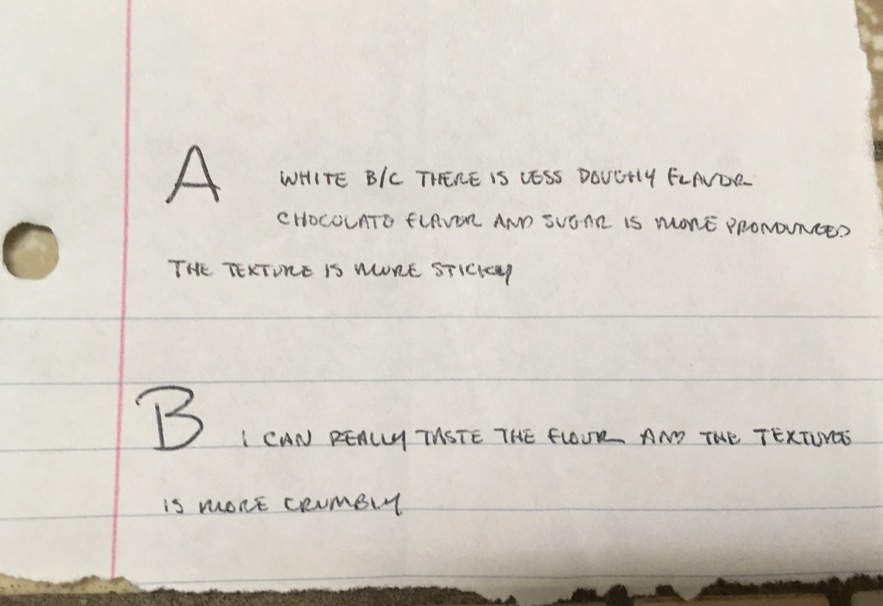 A WHITE B/C THERE IS LESS DOUGHY FLAVOR
CHOCOLATE FLAVOR AND SUGAR IS MORE PRONOUNCED
THE TEXTURE IS MORE STICKY
B I CAN REALLY TASTE THE FLOUR AND THE TEXTURE
IS MORE CRUMBLY